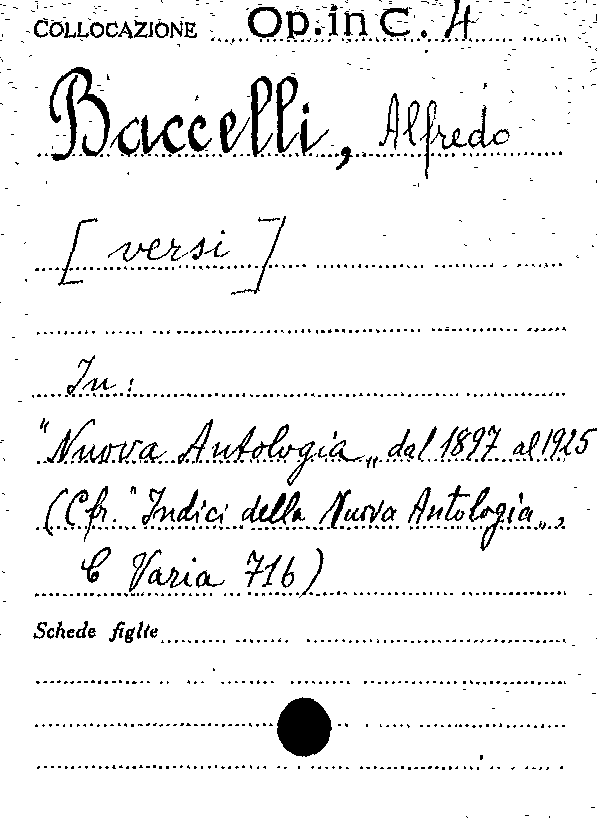 COLLOCAZIONE Op. in C. 4
Baccelli, Alfredo
[versi]
In:
"Nuova Antologia„ dal 1897 al 1925
(Cfr. "Indici della Nuova Antologia„,
C Varia 716)
Schede figlie